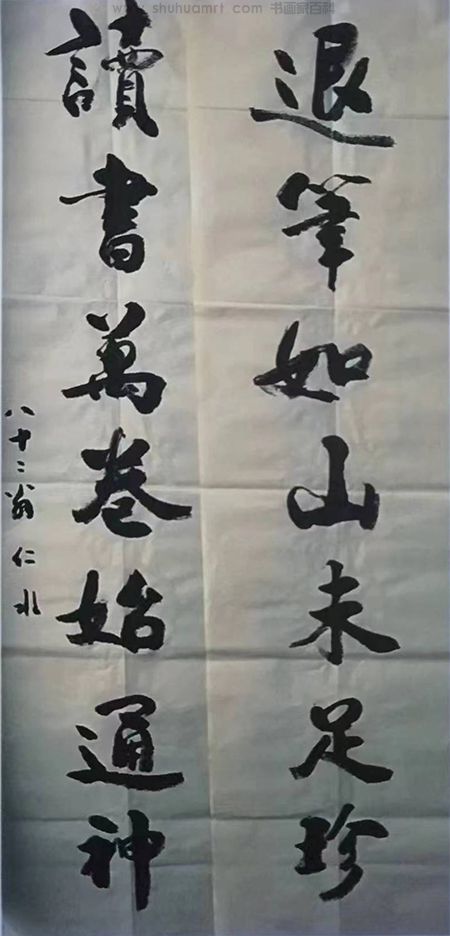 www.shuhuamrt.com 书画家百科
退筆如山未足珍
讀書萬卷始通神
八十二翁仁水